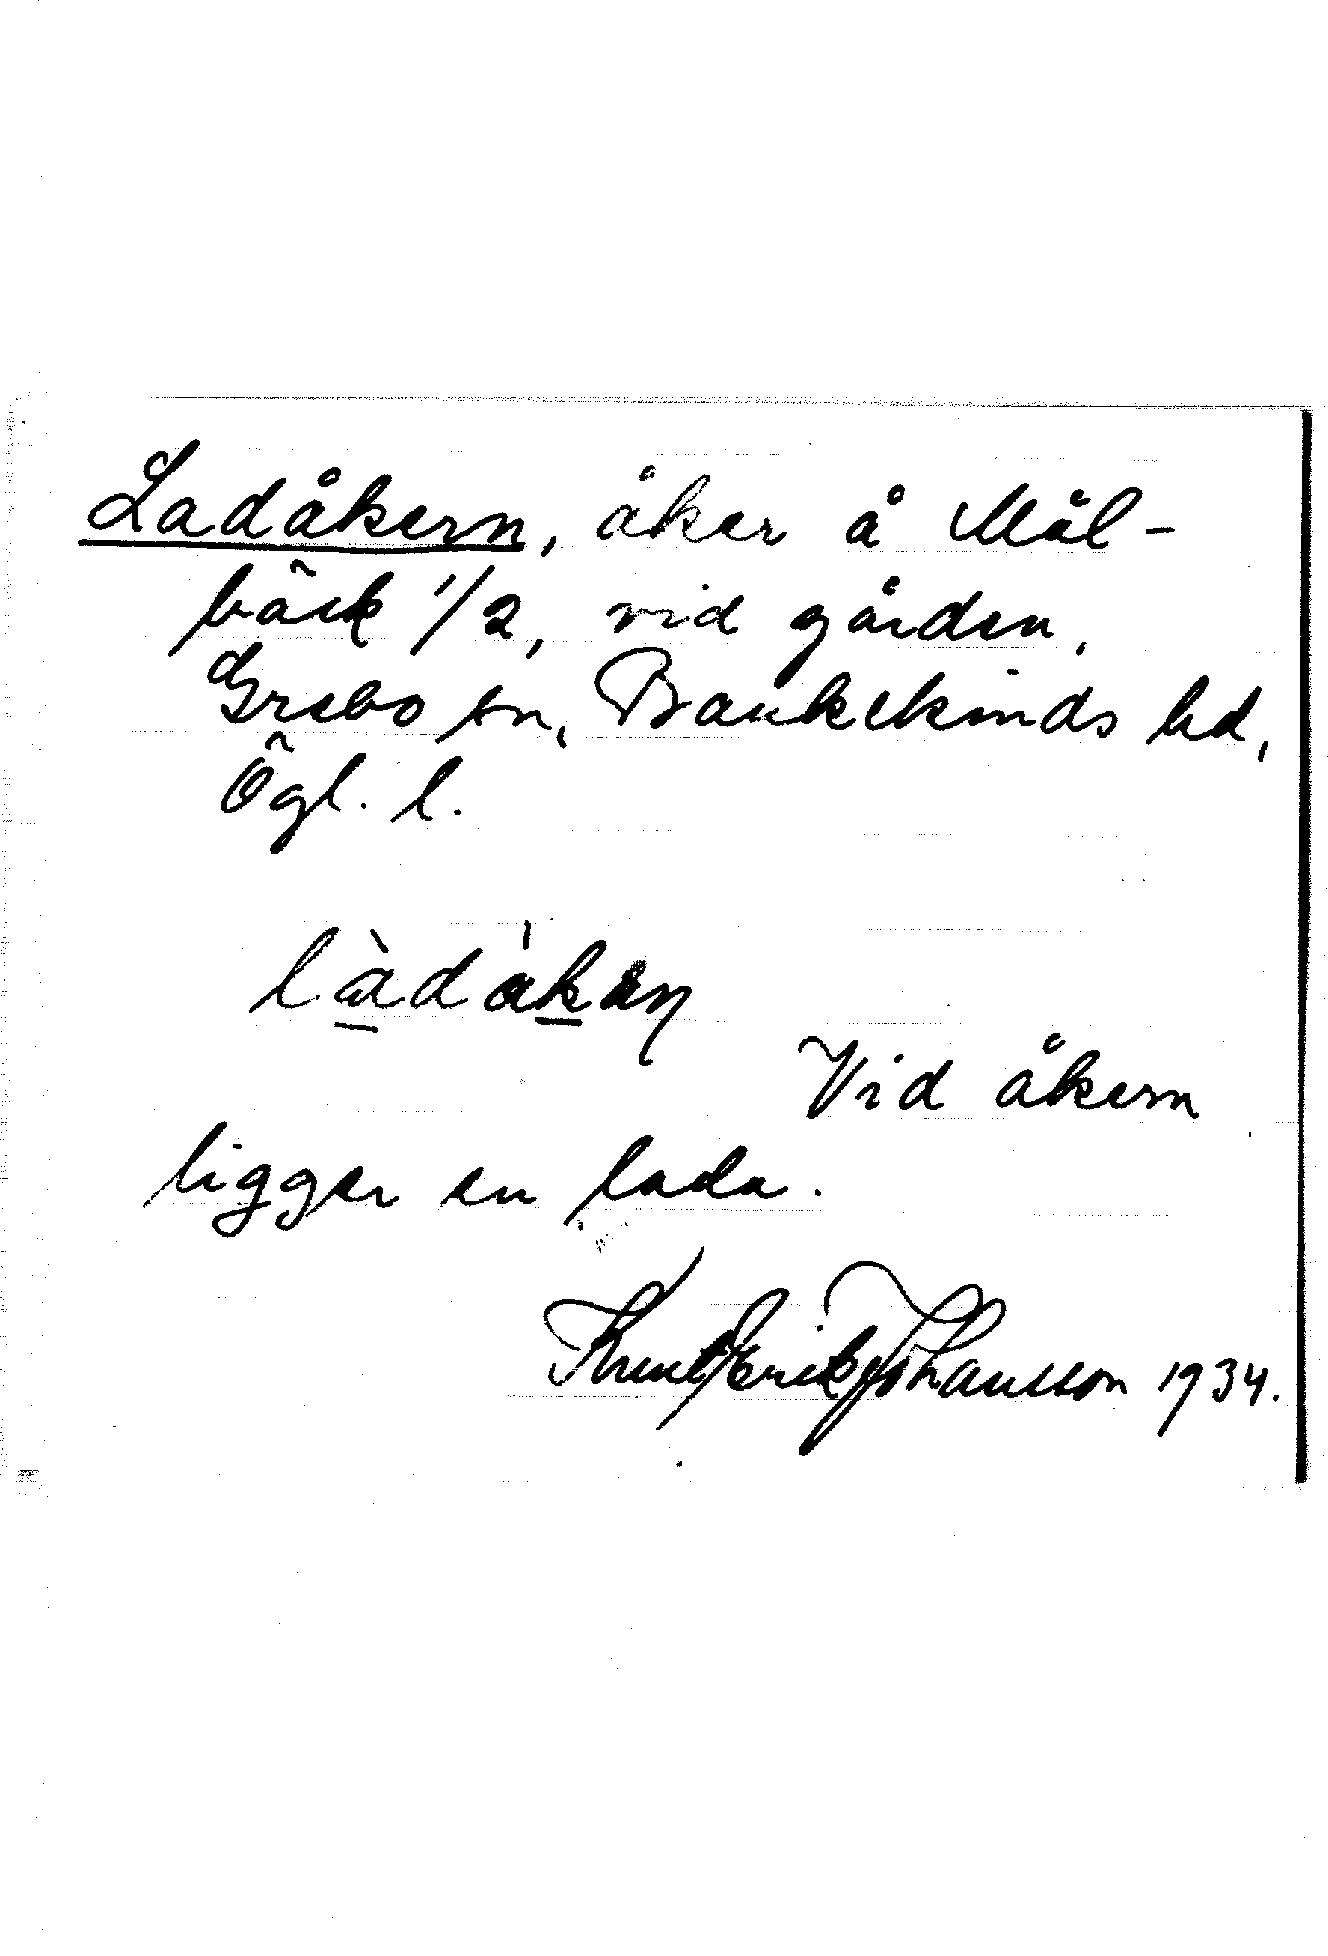 Ladåkern, åker å Mål-
bäck 1/2, vid gården,
Grebo sn, Bankekinds hd,
Ögl. l.
làdåkəɳ
Vid åkern
ligger en lada.
Knut Erik Johansson 1934.